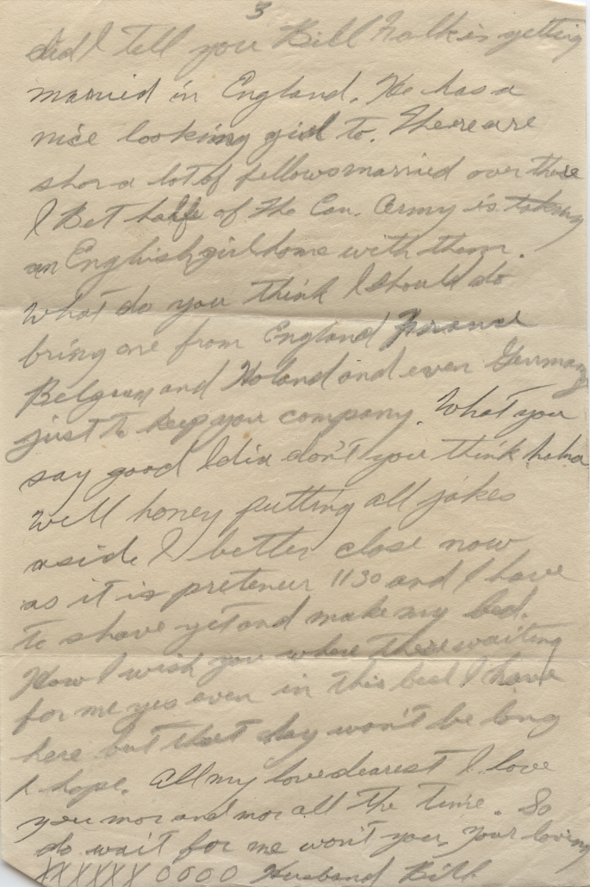 3
did I tell you Bill Falk is getting
married in England. He has a
nice looking girl to. There are
shor a lot of fellows married over there
I Bet halfe of the Can. Army is taking
an English girl home with them.
What do you think I should do
bring one from England France
Belgium and Holand and even Germany
just to keep you company. What you
say good Idia don't you think haha
Well honey putting all jokes
aside I better close now
as it is preteneur 1130 and I have
to shave yet and make my bed.
How I wish you where there waiting
for me yes even in this bed I have
here but that day won't be long
I hope. All my love dearest I love
you mor and mor all the time. So
do wait for me won't you, your loving
XXXXXX OOOO Husband Bill